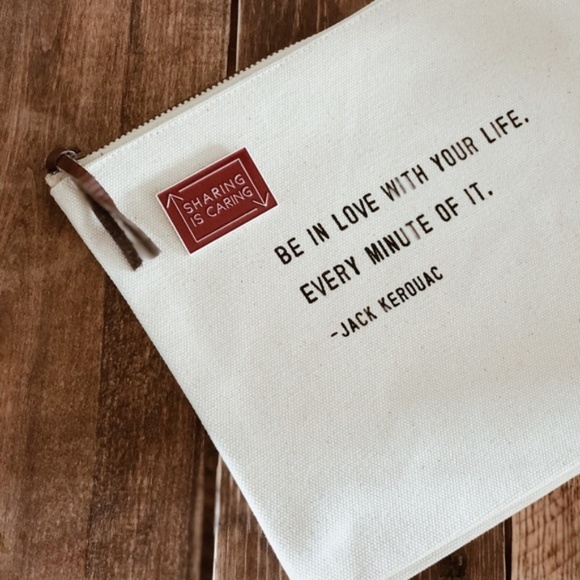 SHARING
IS CARING
BE IN LOVE WITH YOUR LIFE.
EVERY MINUTE OF IT.
-JACK KEROUAC